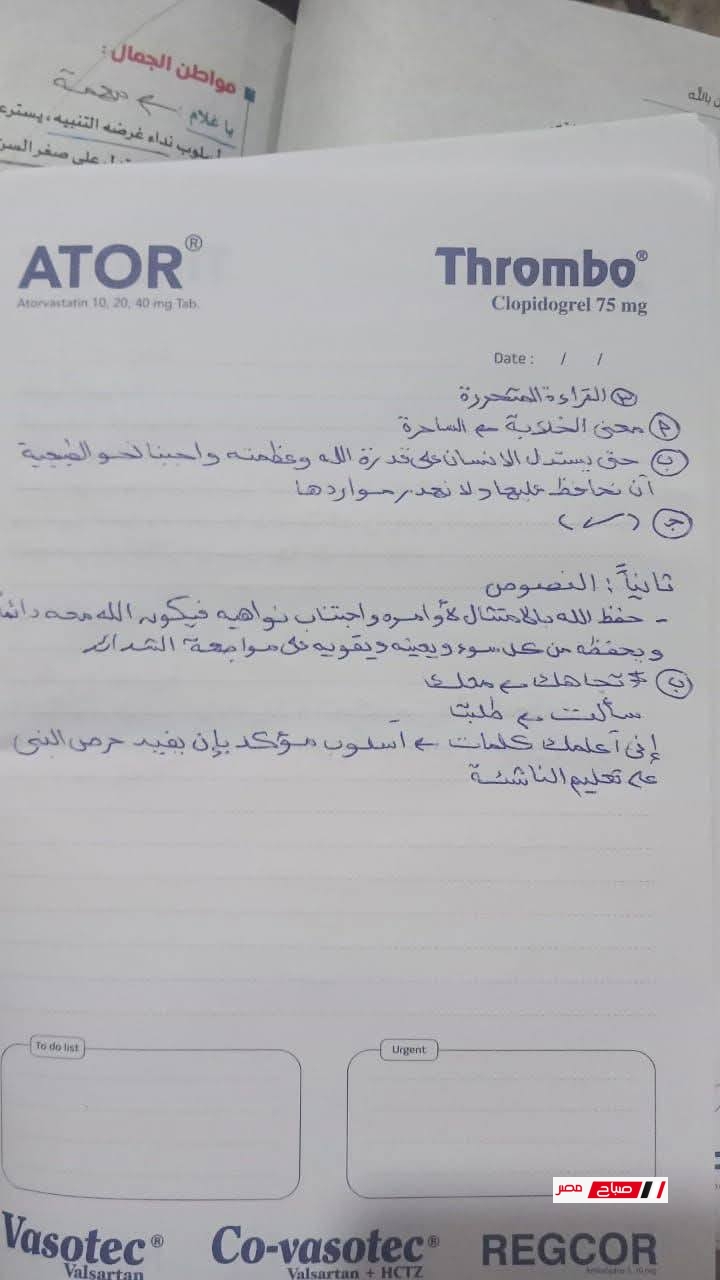 مواطن الجمال :
يا غلام ← مهمة
أسلوب نداء غرضه التنبيه، يسترع
على صغر السن
ن بالله
ATOR®
Atorvastatin 10, 20, 40 mg Tab.
Thrombo®
Clopidogrel 75 mg
Date : / /
٣ القراءة المتحررة
أ معنى الخلابة ← الساحرة
ب حتى يستدل الانسان على قدرة الله وعظمته واجبنا نحو الطبيعة
أن نحافظ عليها ولا نهدر مواردها
جـ (✓)
ثانياً : النصوص
- حفظ الله بالامتثال لأوامره واجتناب نواهيه فيكون الله معه دائماً
ويحفظه من كل سوء ويعينه ويقويه على مواجهة الشدائد
ب * تجاهك ← معك
سألت ← طلبت
إنى أعلمك كلمات ← أسلوب مؤكد بإن يفيد حرص النبى
على تعليم الناشئة
To do list
Urgent
صباح مصر
Vasotec®
Valsartan
Co-vasotec®
Valsartan + HCTZ
REGCOR